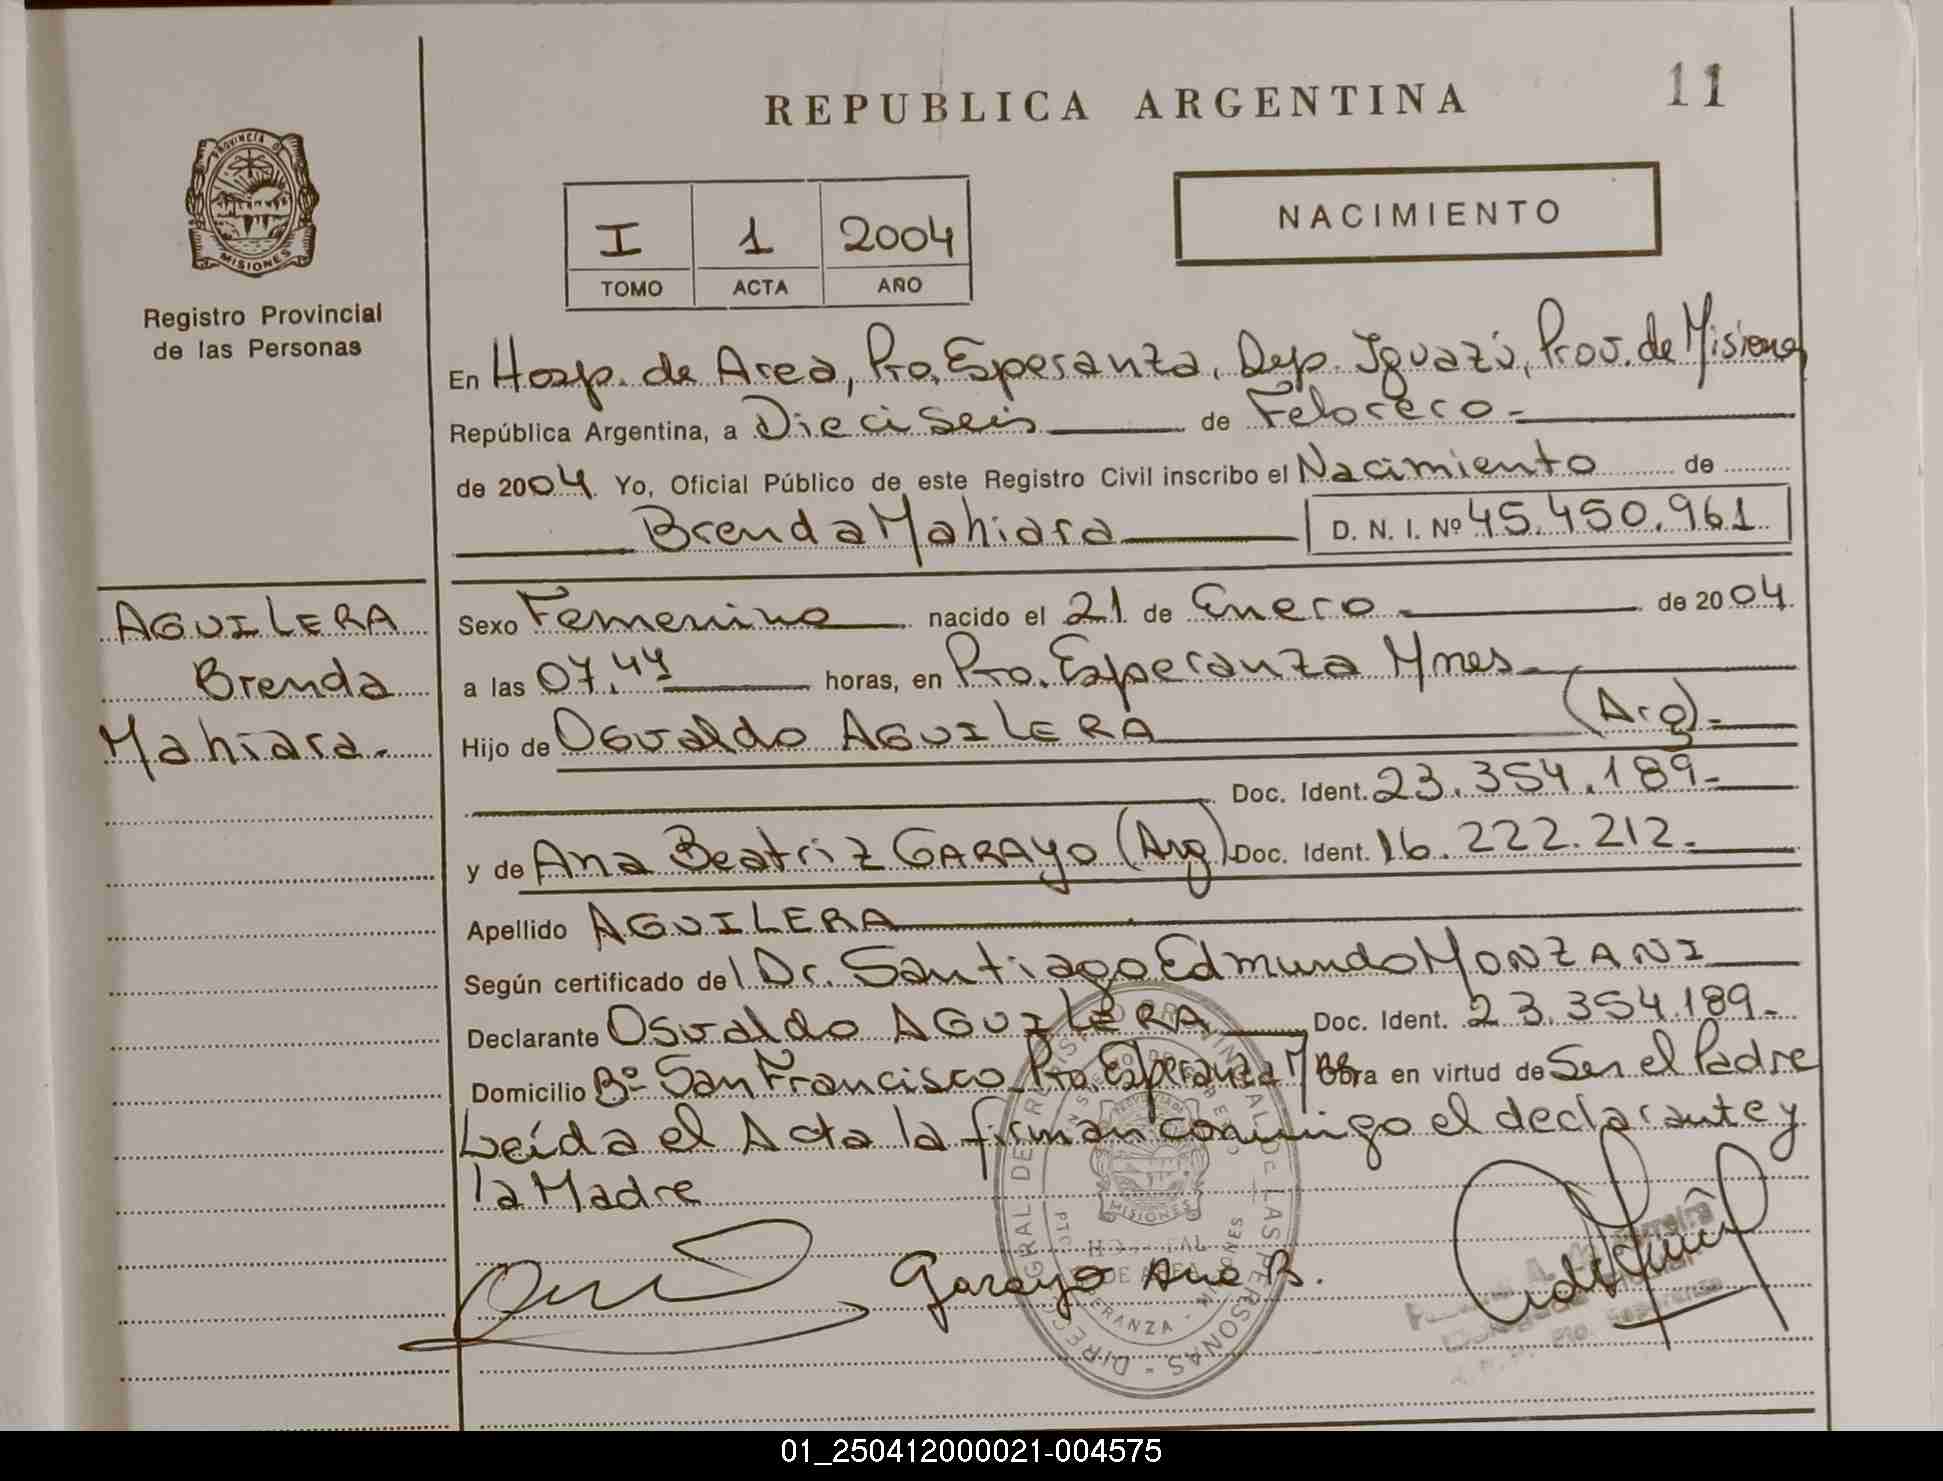 REPUBLICA ARGENTINA
11
PROVINCIA DE
MISIONES
Registro Provincial
de las Personas
I 1 2004
TOMO ACTA AÑO
NACIMIENTO
En Hosp. de Area, Pto. Esperanza, Dep. Iguazú, Prov. de Misiones
República Argentina, a Dieciseis de Febrero.-
de 2004. Yo, Oficial Público de este Registro Civil inscribo el Nacimiento de
Brenda Mahiara D. N. I. Nº 45.450.961
AGUILERA
Brenda
Mahiara.-
Sexo Femenino nacido el 21 de Enero.- de 2004.
a las 07,44 horas, en Pto. Esperanza Mnes-
Hijo de Osvaldo AGUILERA (Arg).-
Doc. Ident. 23.354.189-
y de Ana Beatriz GARAYO (Arg) Doc. Ident. 16.222.212.-
Apellido AGUILERA
Según certificado del Dr. Santiago Edmundo MONZANI
Declarante Osvaldo AGUILERA Doc. Ident. 23.354.189-
Domicilio Bº San Francisco Pto. Esperanza Mnes Obra en virtud de Ser el Padre
Leída el Acta la firman conmigo el declarante y
la Madre
Garayo Ana B.
HOSPITAL
DE AREA
ESPERANZA - MISIONES
MISIONES
01_250412000021-004575